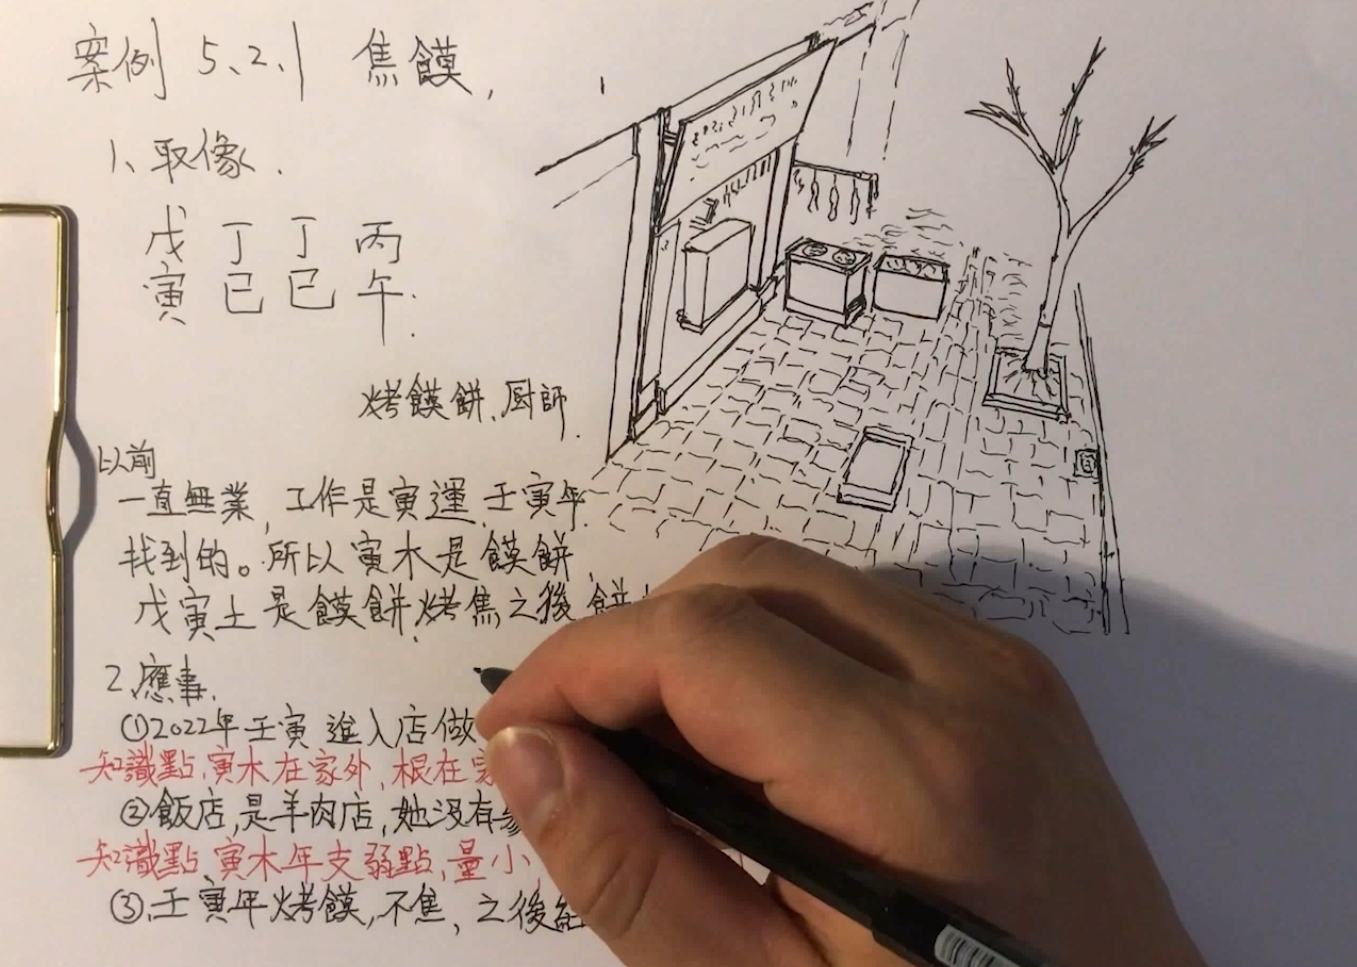 案例 5、2、1 焦饃，
1、取像．
戊 丁 丁 丙
寅 巳 巳 午．
烤饃餅、厨師．
以前
一直無業，工作是寅運、壬寅年
找到的。所以寅木是饃餅
戊寅土是饃餅烤焦之後餅
2、應事．
①2022年壬寅進入店做
知識點、寅木在家外，根在
②飯店，是羊肉店，她没有
知識點、寅木年支弱點，量小
③、壬寅年烤饃，不焦，之後